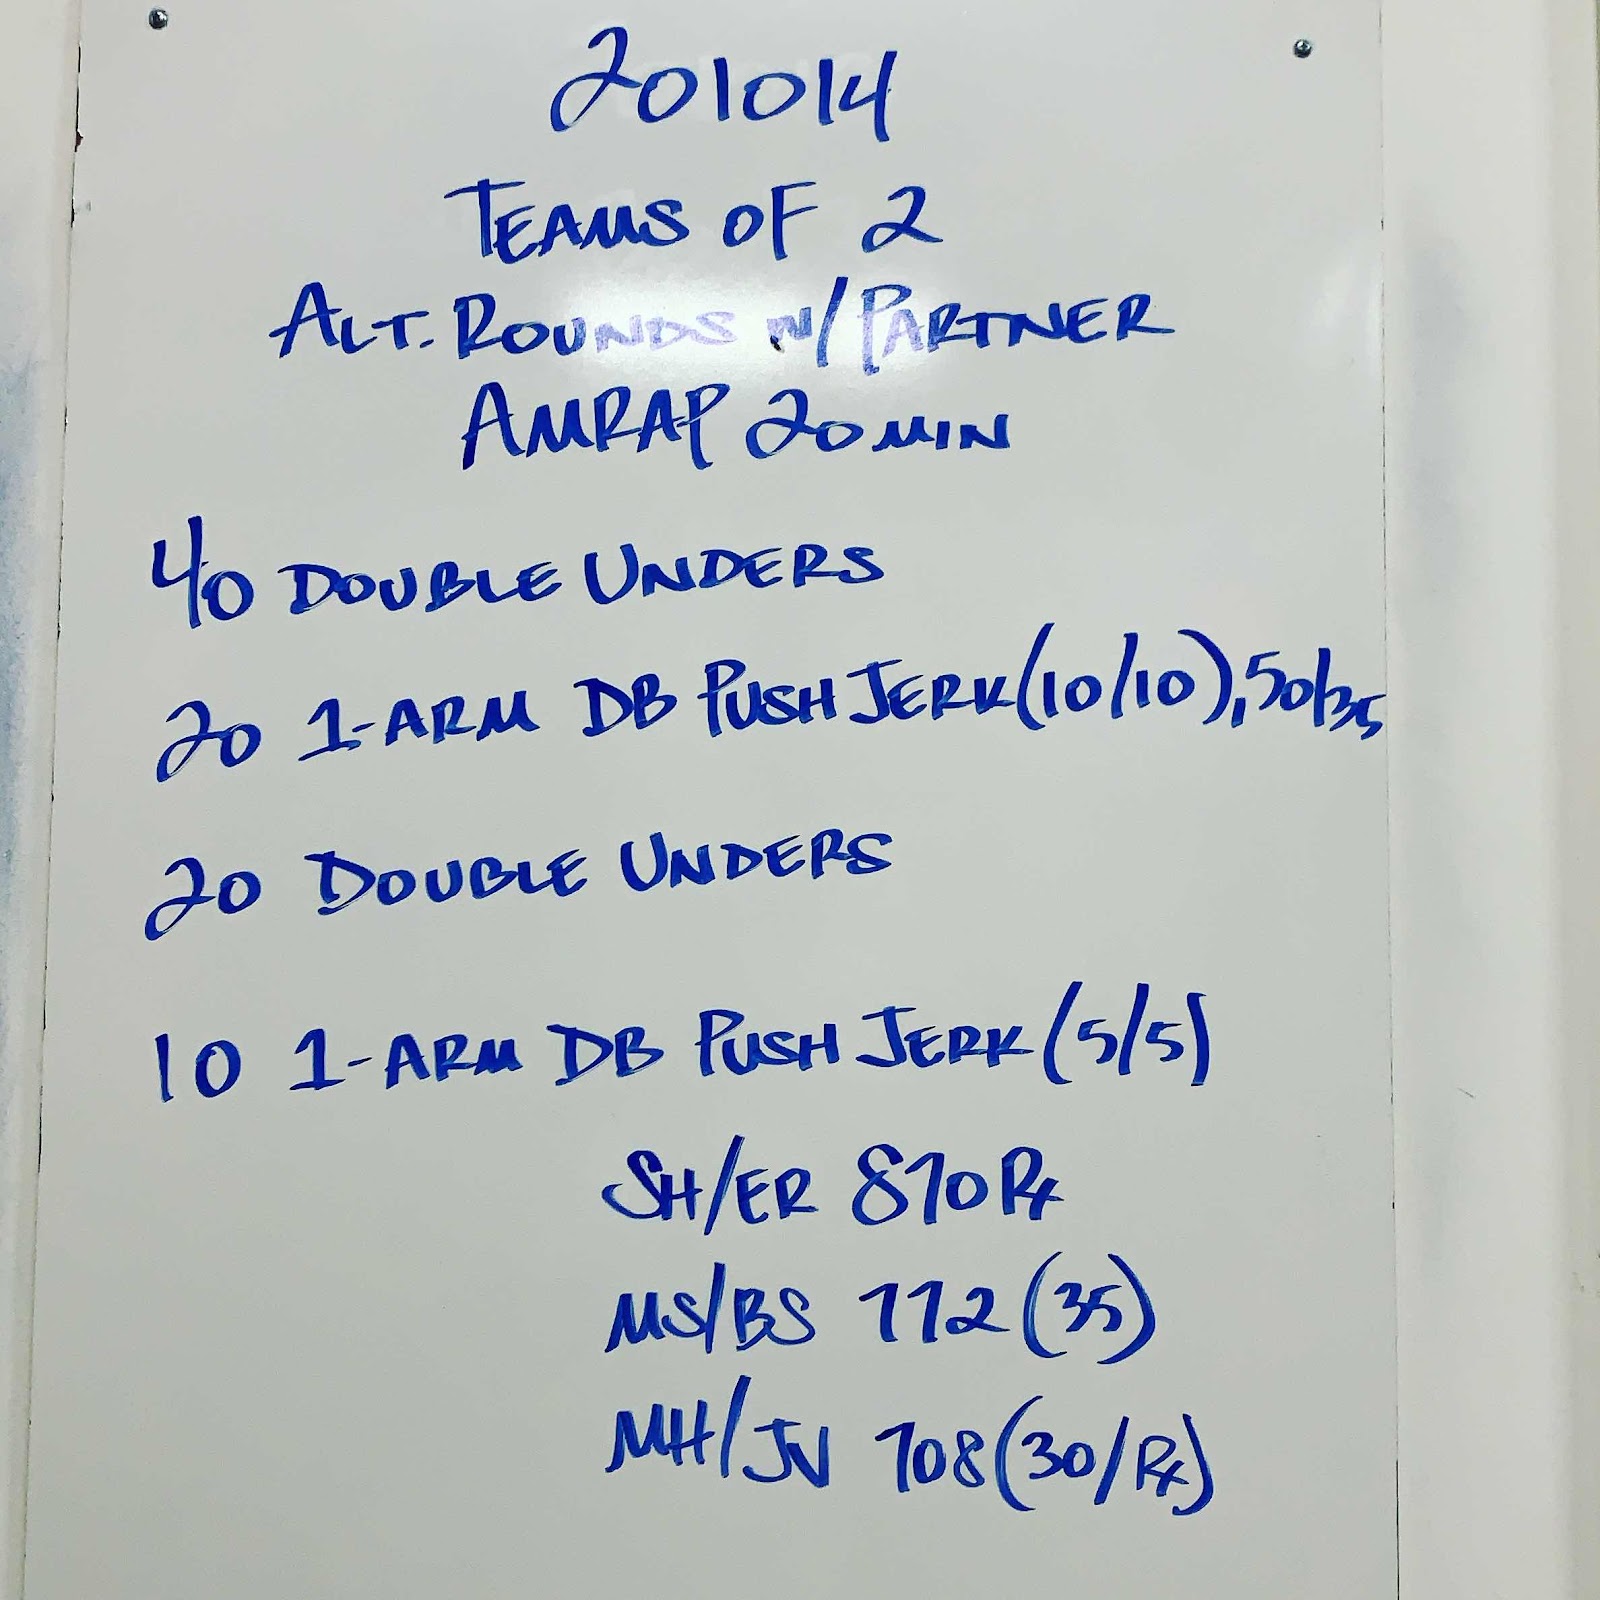 201014
TEAMS OF 2
ALT. ROUNDS W/ PARTNER
AMRAP 20 MIN
40 DOUBLE UNDERS
20 1-ARM DB PUSH JERK (10/10), 50/35
20 DOUBLE UNDERS
10 1-ARM DB PUSH JERK (5/5)
SH/ER 870 Rx
MS/BS 772 (35)
MH/JV 708 (30/Rx)